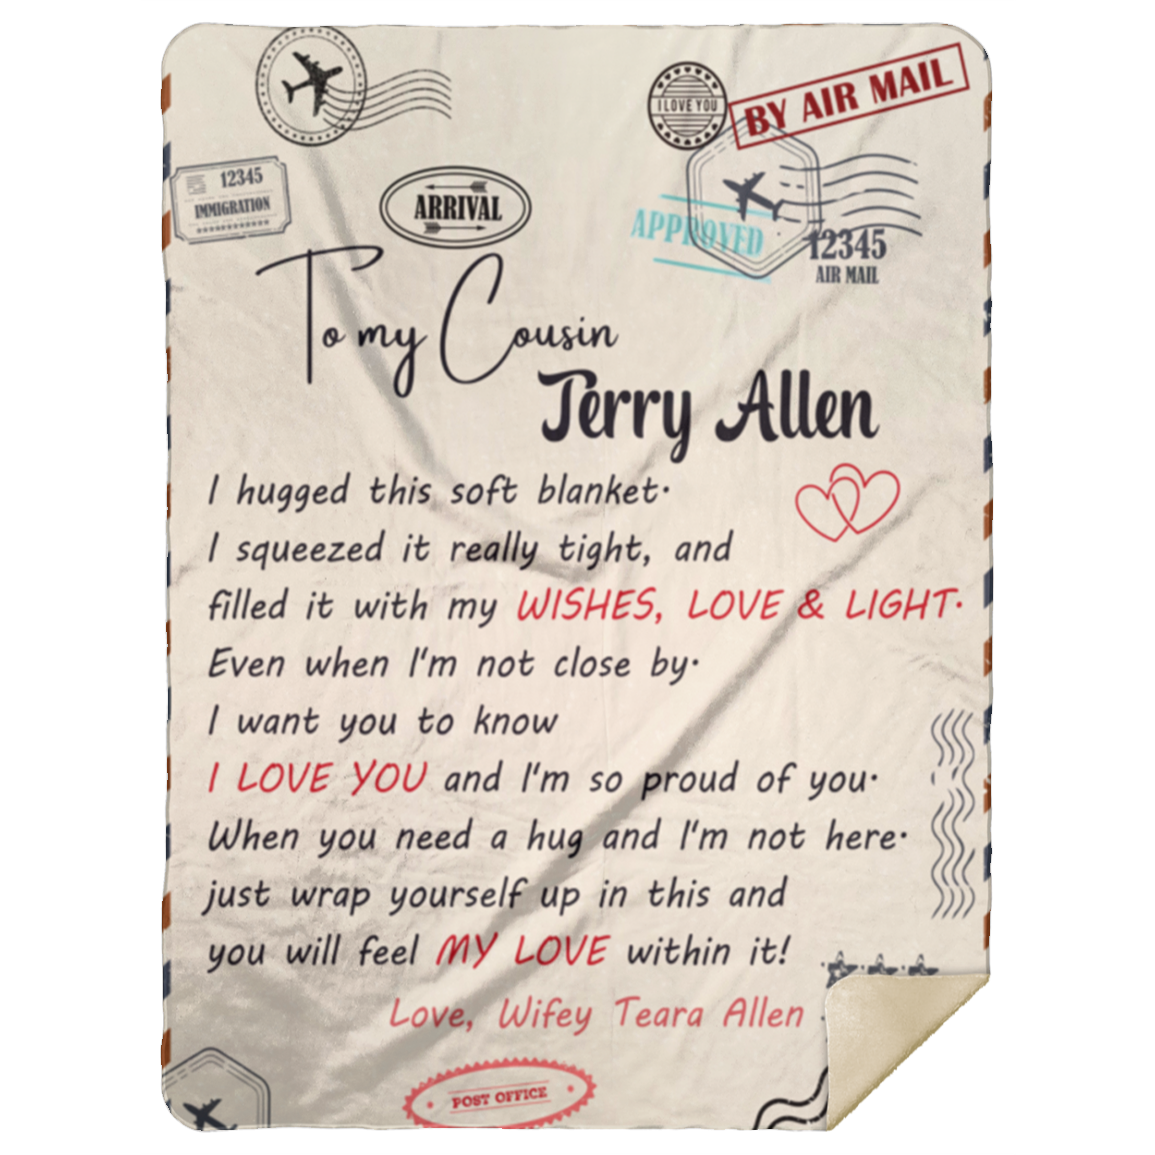 I LOVE YOU
BY AIR MAIL
12345
IMMIGRATION
ARRIVAL
APPROVED
12345
AIR MAIL
To my Cousin
Terry Allen
I hugged this soft blanket.
I squeezed it really tight, and
filled it with my WISHES, LOVE & LIGHT.
Even when I'm not close by.
I want you to know
I LOVE YOU and I'm so proud of you.
When you need a hug and I'm not here.
just wrap yourself up in this and
you will feel MY LOVE within it!
Love, Wifey Teara Allen
POST OFFICE